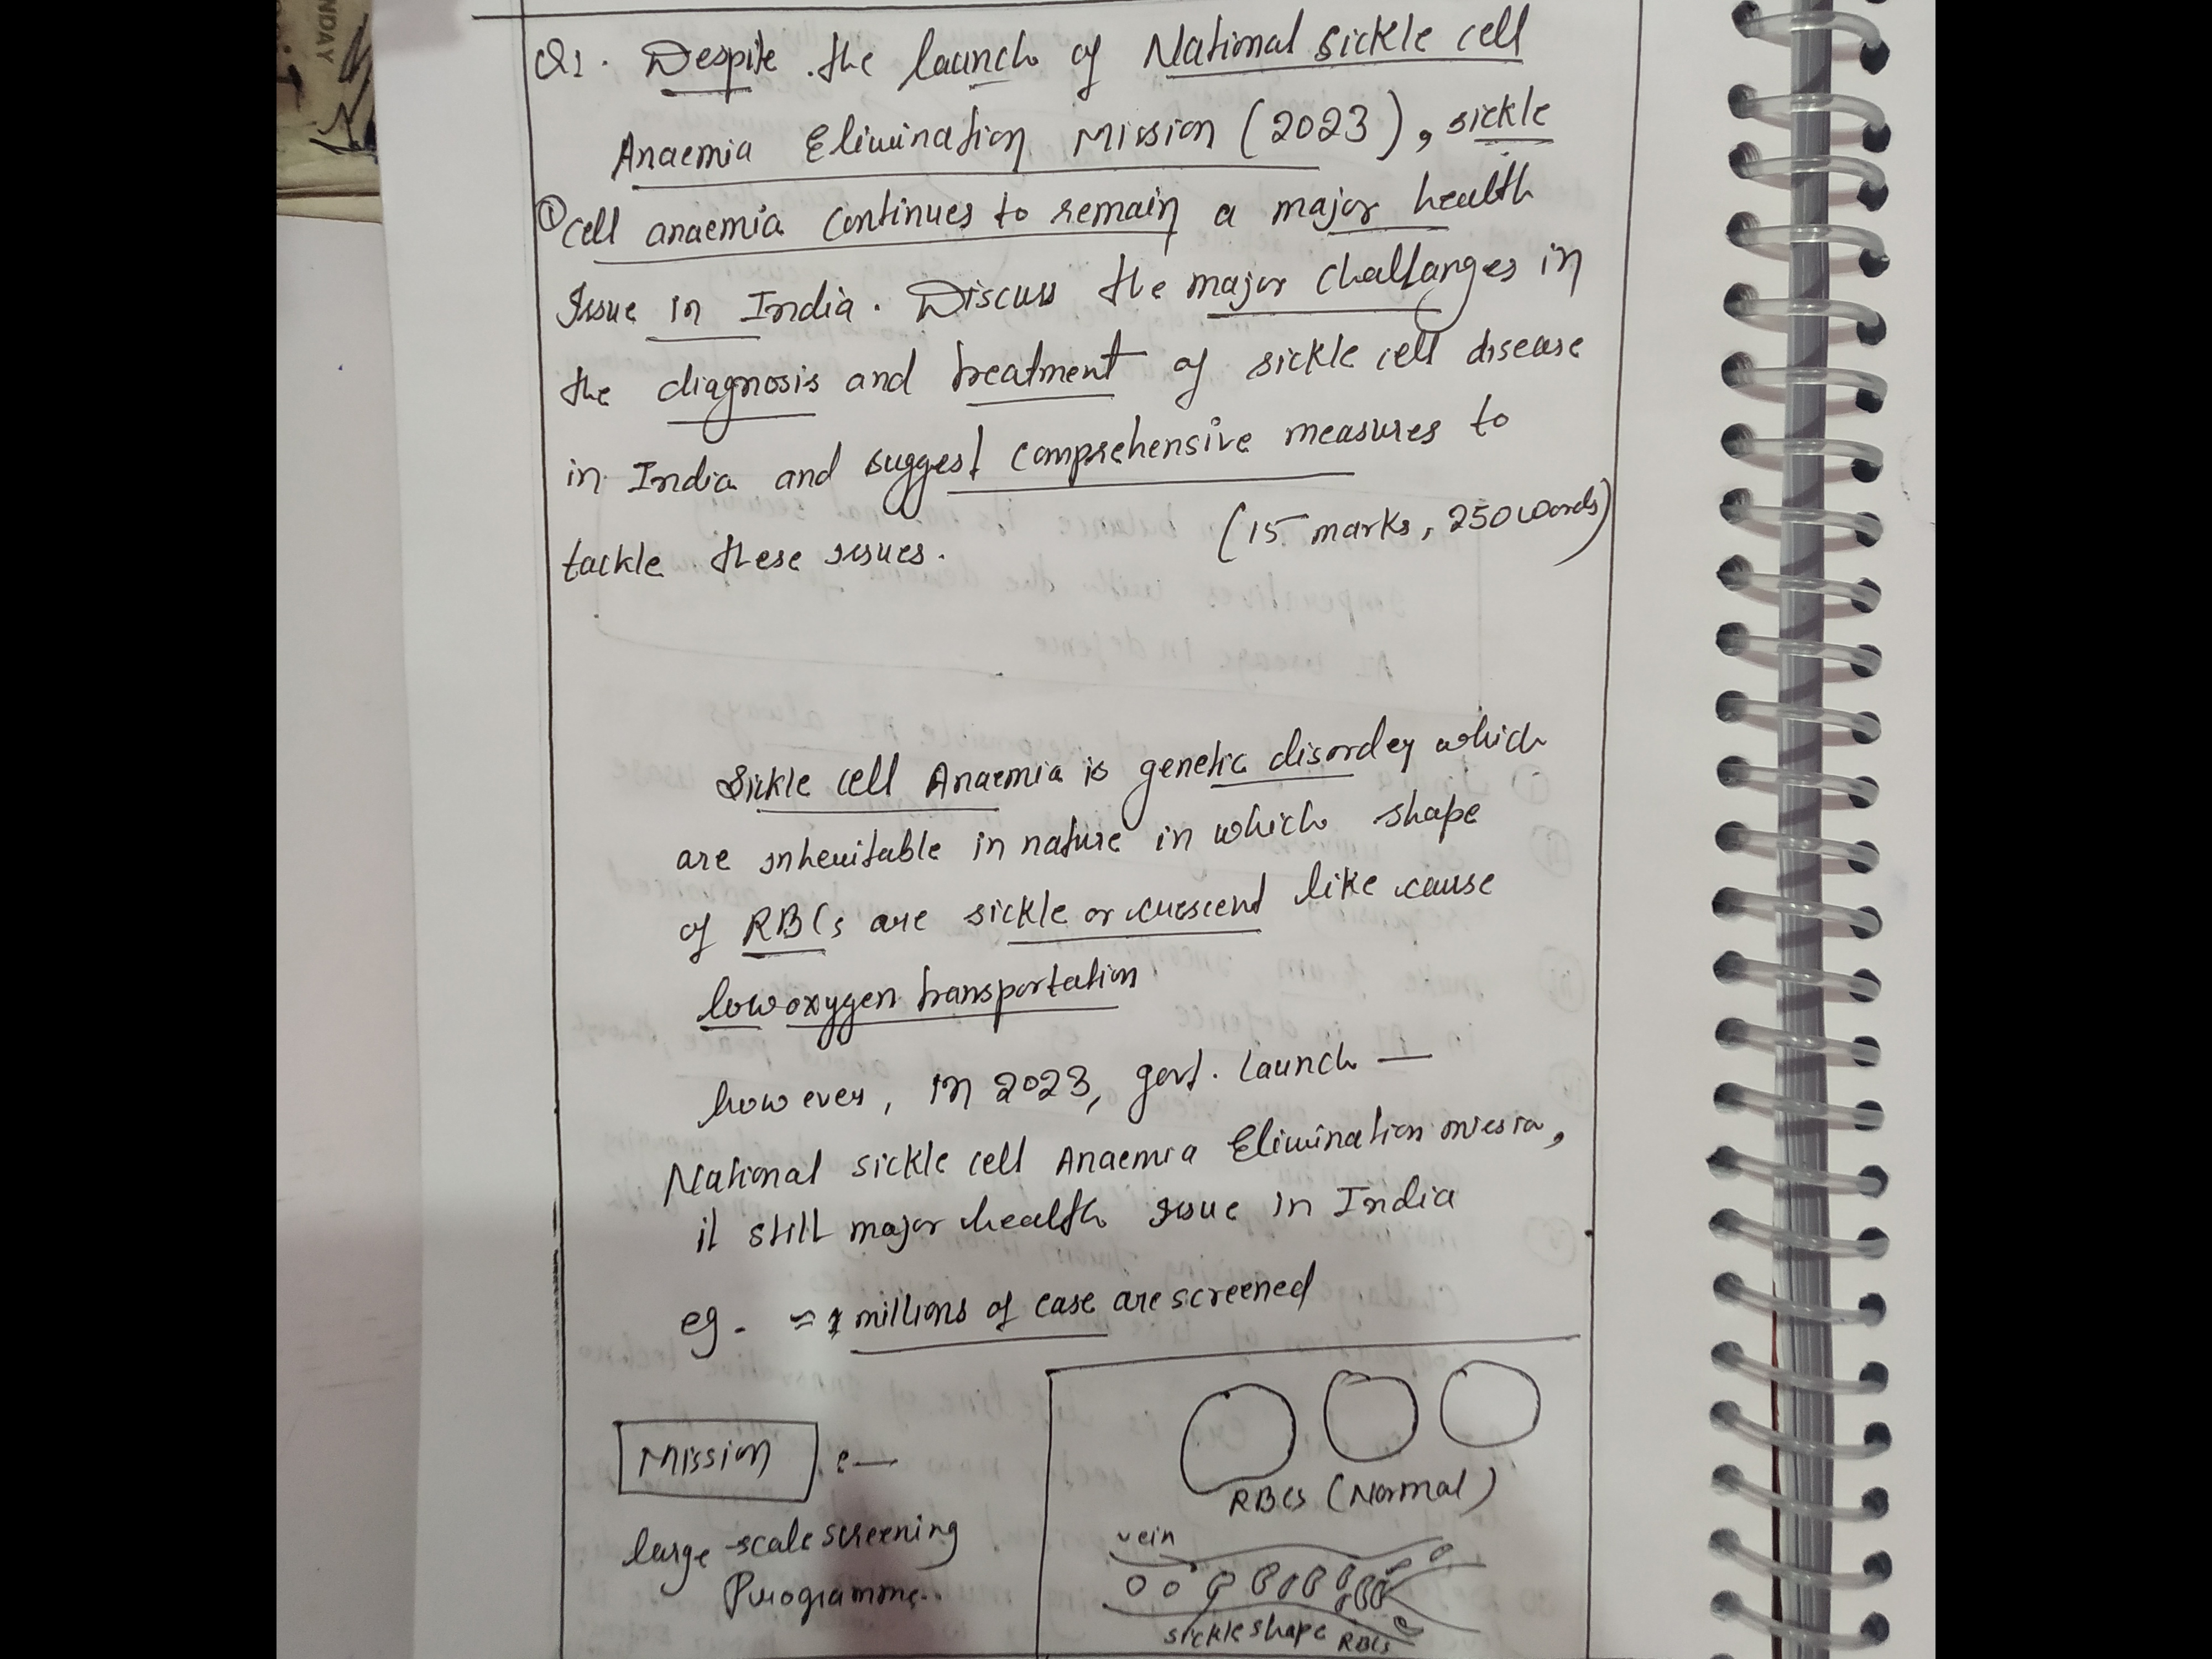 Q1. Despite the launch of National sickle cell
Anaemia Elimination Mission (2023), sickle
① cell anaemia continues to remain a major health
issue in India. Discuss the major challanges in
the diagnosis and treatment of sickle cell disease
in India and suggest comprehensive measures to
tackle these issues. (15 marks, 250 words)
Sickle cell Anaemia is genetic disorder which
are inheritable in nature in which shape
of RBCs are sickle or crescend like cause
low oxygen transportation
however, in 2023, govt. launch —
National sickle cell Anaemia Elimination
it still major health issue in India
eg. ≈ 1 millions of case are screened
Mission :—
large-scale screening
Programme..
RBCs (Normal)
vein
sickle shape RBCs
NDAY